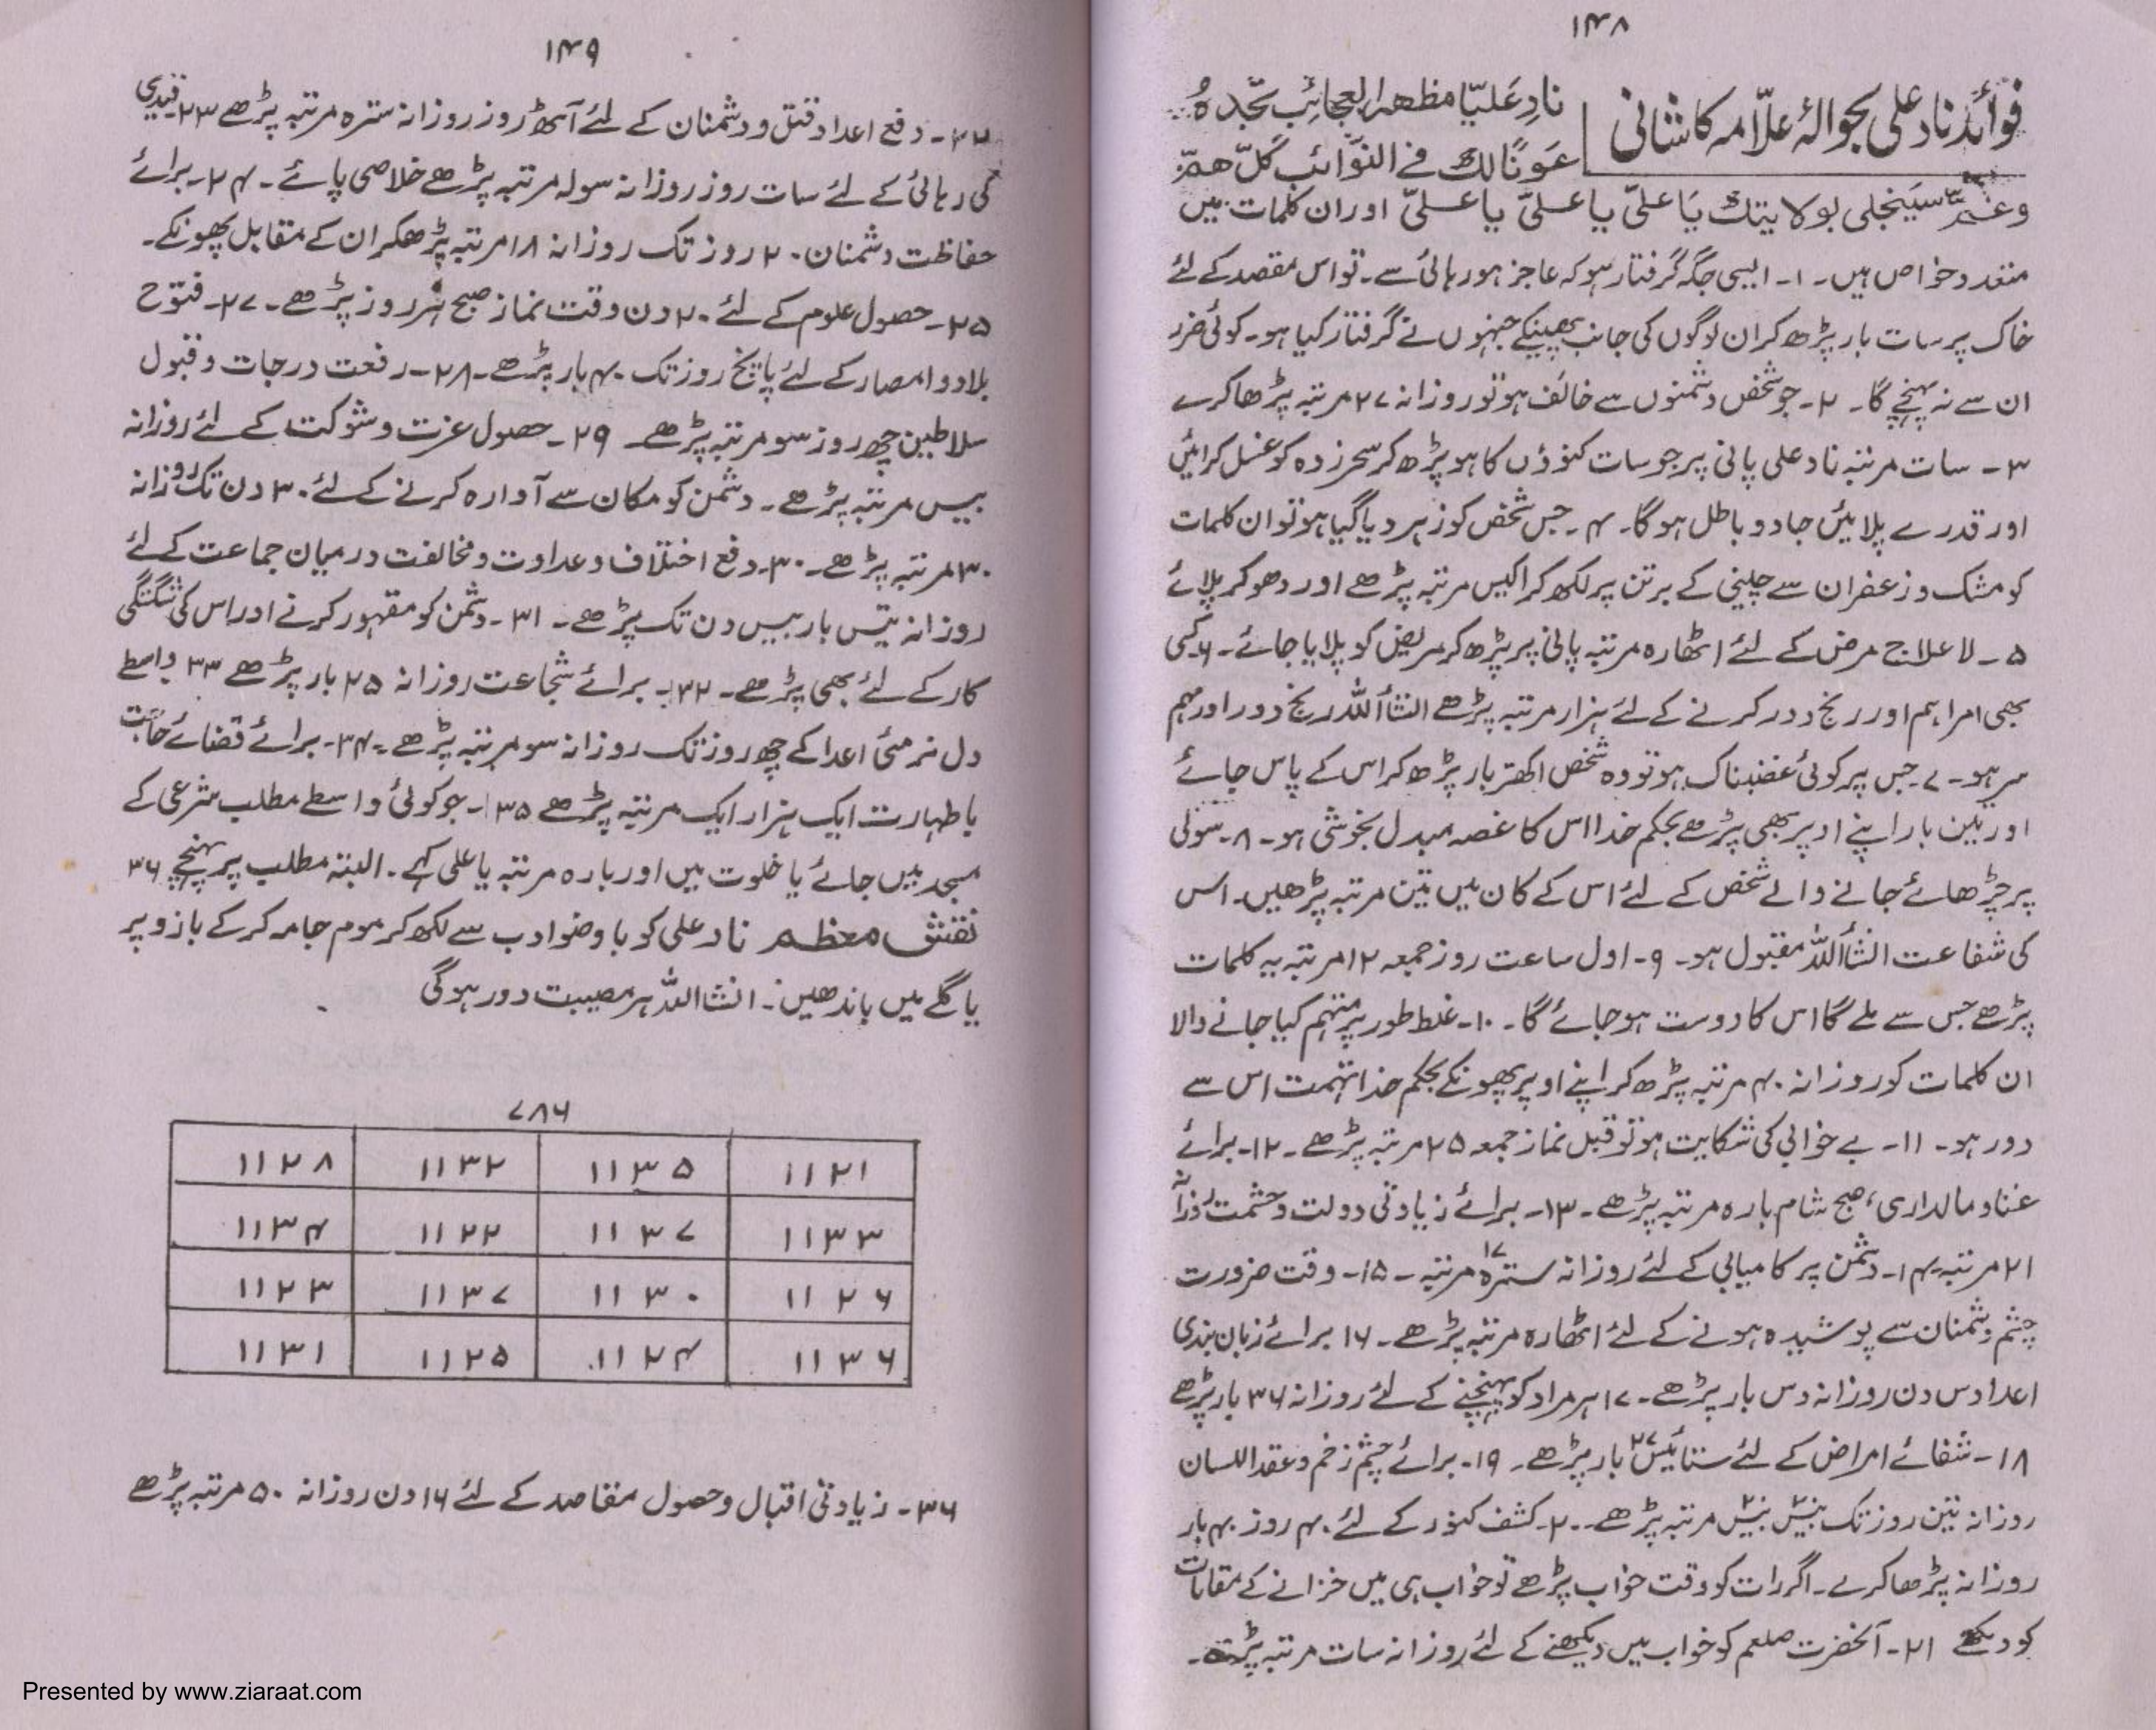 ۱۴۸
فوائد ناد علی بحوالۂ علّامہ کاشانی
نادِ عَلیّا مظهر العجائِب تجّدہُ
عَونًا لك فے النّوَائب کلّ همّ
وغمّ سَینجلی بولایتك یَا علیّ یا علیّ یا علیّ اوران کلمات میں
متعدد خواص ہیں۔ ۱۔ ایسی جگہ گرفتار ہو کہ عاجز ہو رہائی سے۔ تو اس مقصد کے لئے
خاک پر سات بار پڑھ کر ان لوگوں کی جانب پھینکے جنہوں نے گرفتار کیا ہو۔ کوئی ضرر
ان سے نہ پہنچے گا۔ ۲۔ جو شخص دشمنوں سے خائف ہو تو روزانہ ۲۷ مرتبہ پڑھا کرے
۳۔ سات مرتبہ ناد علی پانی پر جو سات کنوؤں کا ہو پڑھ کر سحر زدہ کو غسل کرائیں
اور قدرے پلائیں جادو باطل ہوگا۔ ۴۔ جس شخص کو زہر دیا گیا ہو تو ان کلمات
کو مشک و زعفران سے چینی کے برتن پر لکھ کر اکیس مرتبہ پڑھے اور دھو کر پلائے
۵۔ لا علاج مرض کے لئے اٹھارہ مرتبہ پانی پر پڑھ کر مریض کو پلایا جائے۔ ۶۔ کسی
بھی امر اہم اور رنج دور کرنے کے لئے ہزار مرتبہ پڑھے انشأاللہ رنج دور اور مہم
سر ہو۔ ۷۔ جس پر کوئی غضبناک ہو تو وہ شخص اکھتر بار پڑھ کر اس کے پاس جائے
اور تین بار اپنے اوپر بھی پڑھے بحکم خدا اس کا غصہ مبدل بخوشی ہو۔ ۸۔ سولی
پر چڑھائے جانے والے شخص کے لئے اس کے کان میں تین مرتبہ پڑھیں۔ اس
کی شفاعت انشأاللہ مقبول ہو۔ ۹۔ اول ساعت روز جمعہ ۱۲ مرتبہ یہ کلمات
پڑھے جس سے ملے گا اس کا دوست ہو جائے گا۔ ۱۰۔ غلط طور پر متہم کیا جانے والا
ان کلمات کو روزانہ ۴۰ مرتبہ پڑھ کر اپنے اوپر پھونکے بحکم خدا تہمت اس سے
دور ہو۔ ۱۱۔ بے خوابی کی شکایت ہو تو قبل نماز جمعہ ۲۵ مرتبہ پڑھے۔ ۱۲۔ برائے
غنا و مالداری، صبح شام بارہ مرتبہ پڑھے۔ ۱۳۔ برائے زیادتی دولت و حشمت روزانہ
۲۱ مرتبہ ۱۴۔ دشمن پر کامیابی کے لئے روزانہ سترہ ۱۷ مرتبہ۔ ۱۵۔ وقت ضرورت
چشم دشمنان سے پوشیدہ ہونے کے لئے اٹھارہ مرتبہ پڑھے۔ ۱۶ برائے زبان بندی
اعدا دس دن روزانہ دس بار پڑھے۔ ۱۷ ہر مراد کو پہنچنے کے لئے روزانہ ۳۶ بار پڑھے
۱۸۔ شفائے امراض کے لئے ستائیس ۲۷ بار پڑھے۔ ۱۹۔ برائے چشم زخم و عقد اللسان
روزانہ تین روز تک بیس بیس مرتبہ پڑھے۔ ۲۰۔ کشف کنوز کے لئے ۴۰ روز ۴۰ بار
روزانہ پڑھا کرے۔ اگر رات کو وقت خواب پڑھے تو خواب ہی میں خزانے کے مقامات
کو دیکھے ۲۱۔ آنحضرت صلعم کو خواب میں دیکھنے کے لئے روزانہ سات مرتبہ پڑھے۔
۱۴۹
۲۲۔ دفع اعدا و قتل و دشمنان کے لئے آٹھ روز روزانہ سترہ مرتبہ پڑھے ۲۳۔ قیدی
کی رہائی کے لئے سات روز روزانہ سولہ مرتبہ پڑھے خلاصی پائے۔ ۲۴۔ برائے
حفاظت دشمنان ۲۰ روز تک روزانہ ۱۸ مرتبہ پڑھکر ان کے مقابل پھونکے۔
۲۵۔ حصول علوم کے لئے ۲۰ دن وقت نماز صبح ہر روز پڑھے۔ ۲۷۔ فتوح
بلاد و امصار کے لئے پانچ روز تک ۴۰ بار پڑھے۔ ۲۸۔ رفعت درجات و قبول
سلاطین چھ روز سو مرتبہ پڑھے۔ ۲۹۔ حصول عزت و شوکت کے لئے روزانہ
بیس مرتبہ پڑھے۔ دشمن کو مکان سے آوارہ کرنے کے لئے ۳۰ دن تک روزانہ
۳۰ مرتبہ پڑھے۔ ۳۰۔ دفع اختلاف و عداوت و مخالفت درمیان جماعت کے لئے
روزانہ تیس بار بیس دن تک پڑھے۔ ۳۱۔ دشمن کو مقہور کرنے اور اس کی شگتگی
کار کے لئے بھی پڑھے۔ ۳۲۔ برائے شجاعت روزانہ ۲۵ بار پڑھے ۳۳ واسطے
دل نرمئی اعدا کے چھ روز تک روزانہ سو مرتبہ پڑھے۔ ۳۴۔ برائے قضائے حاجت
باطہارت ایک ہزار ایک مرتبہ پڑھے ۳۵۔ جو کوئی واسطے مطلب شرعی کے
مسجد میں جائے یا خلوت میں اور بارہ مرتبہ یا علی کہے۔ البتہ مطلب پر پہنچے ۳۶
نقش معظم ناد علی کو با وضو ادب سے لکھ کر موم جامہ کرکے بازو پر
یا گلے میں باندھیں۔ انشااللہ ہر مصیبت دور ہوگی
۷۸۶
۱۱۲۸ ۱۱۳۲ ۱۱۳۵ ۱۱۲۱
۱۱۳۴ ۱۱۲۲ ۱۱۳۷ ۱۱۳۳
۱۱۲۳ ۱۱۳۷ ۱۱۳۰ ۱۱۲۶
۱۱۳۱ ۱۱۲۵ ۱۱۲۴ ۱۱۳۶
۳۶۔ زیادتی اقبال و حصول مقاصد کے لئے ۱۶ دن روزانہ ۵۰ مرتبہ پڑھے
Presented by www.ziaraat.com